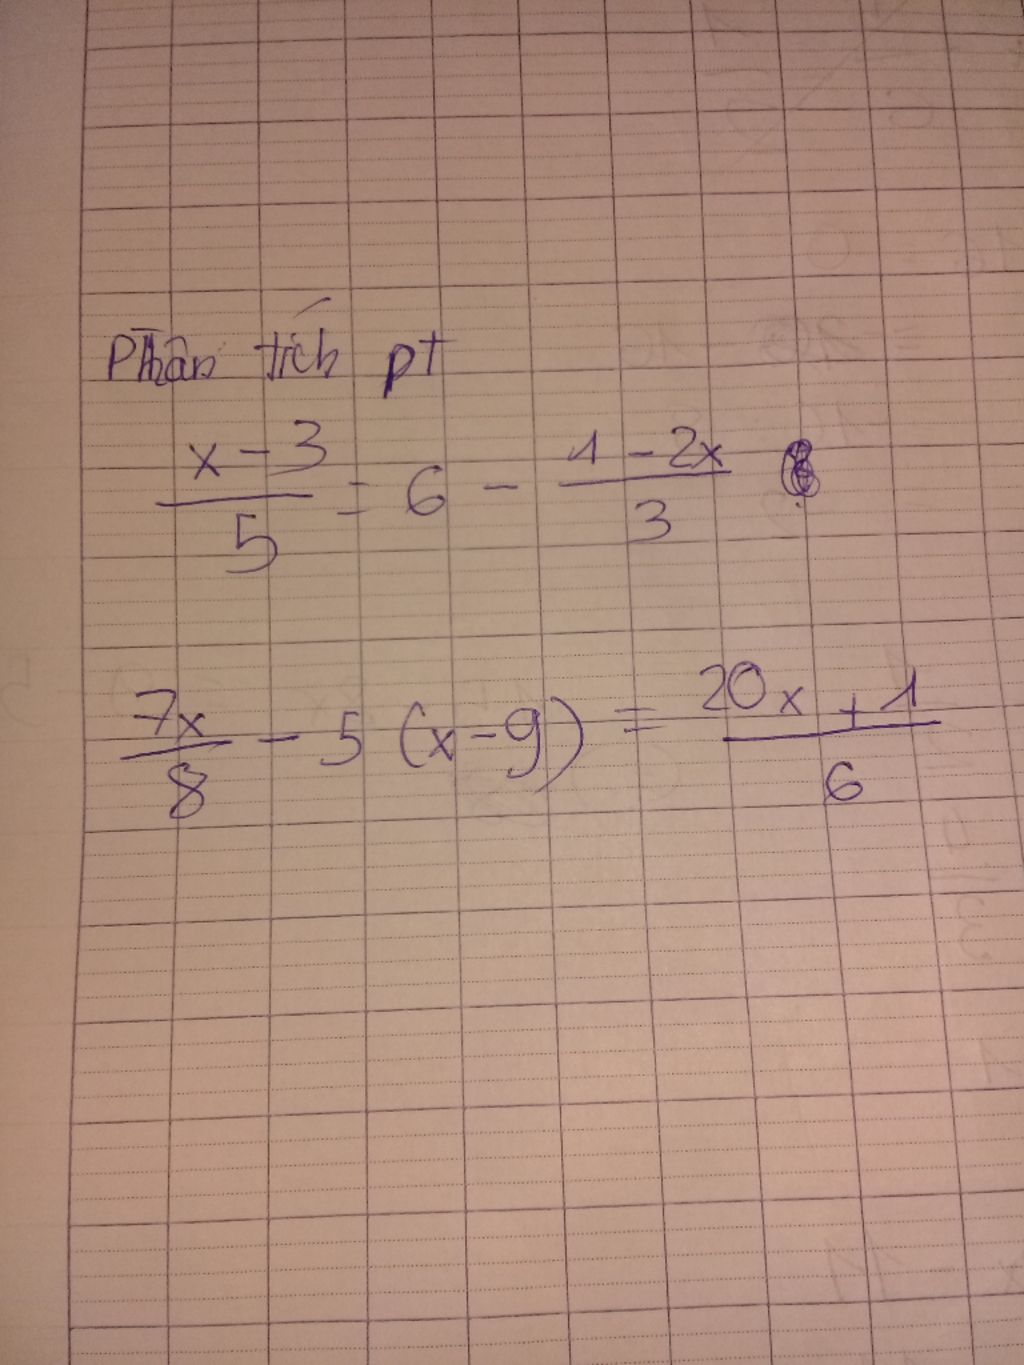 Phân tích pt
x - 3 / 5 = 6 - 1 - 2x / 3
7x / 8 - 5 (x - 9) = 20x + 1 / 6